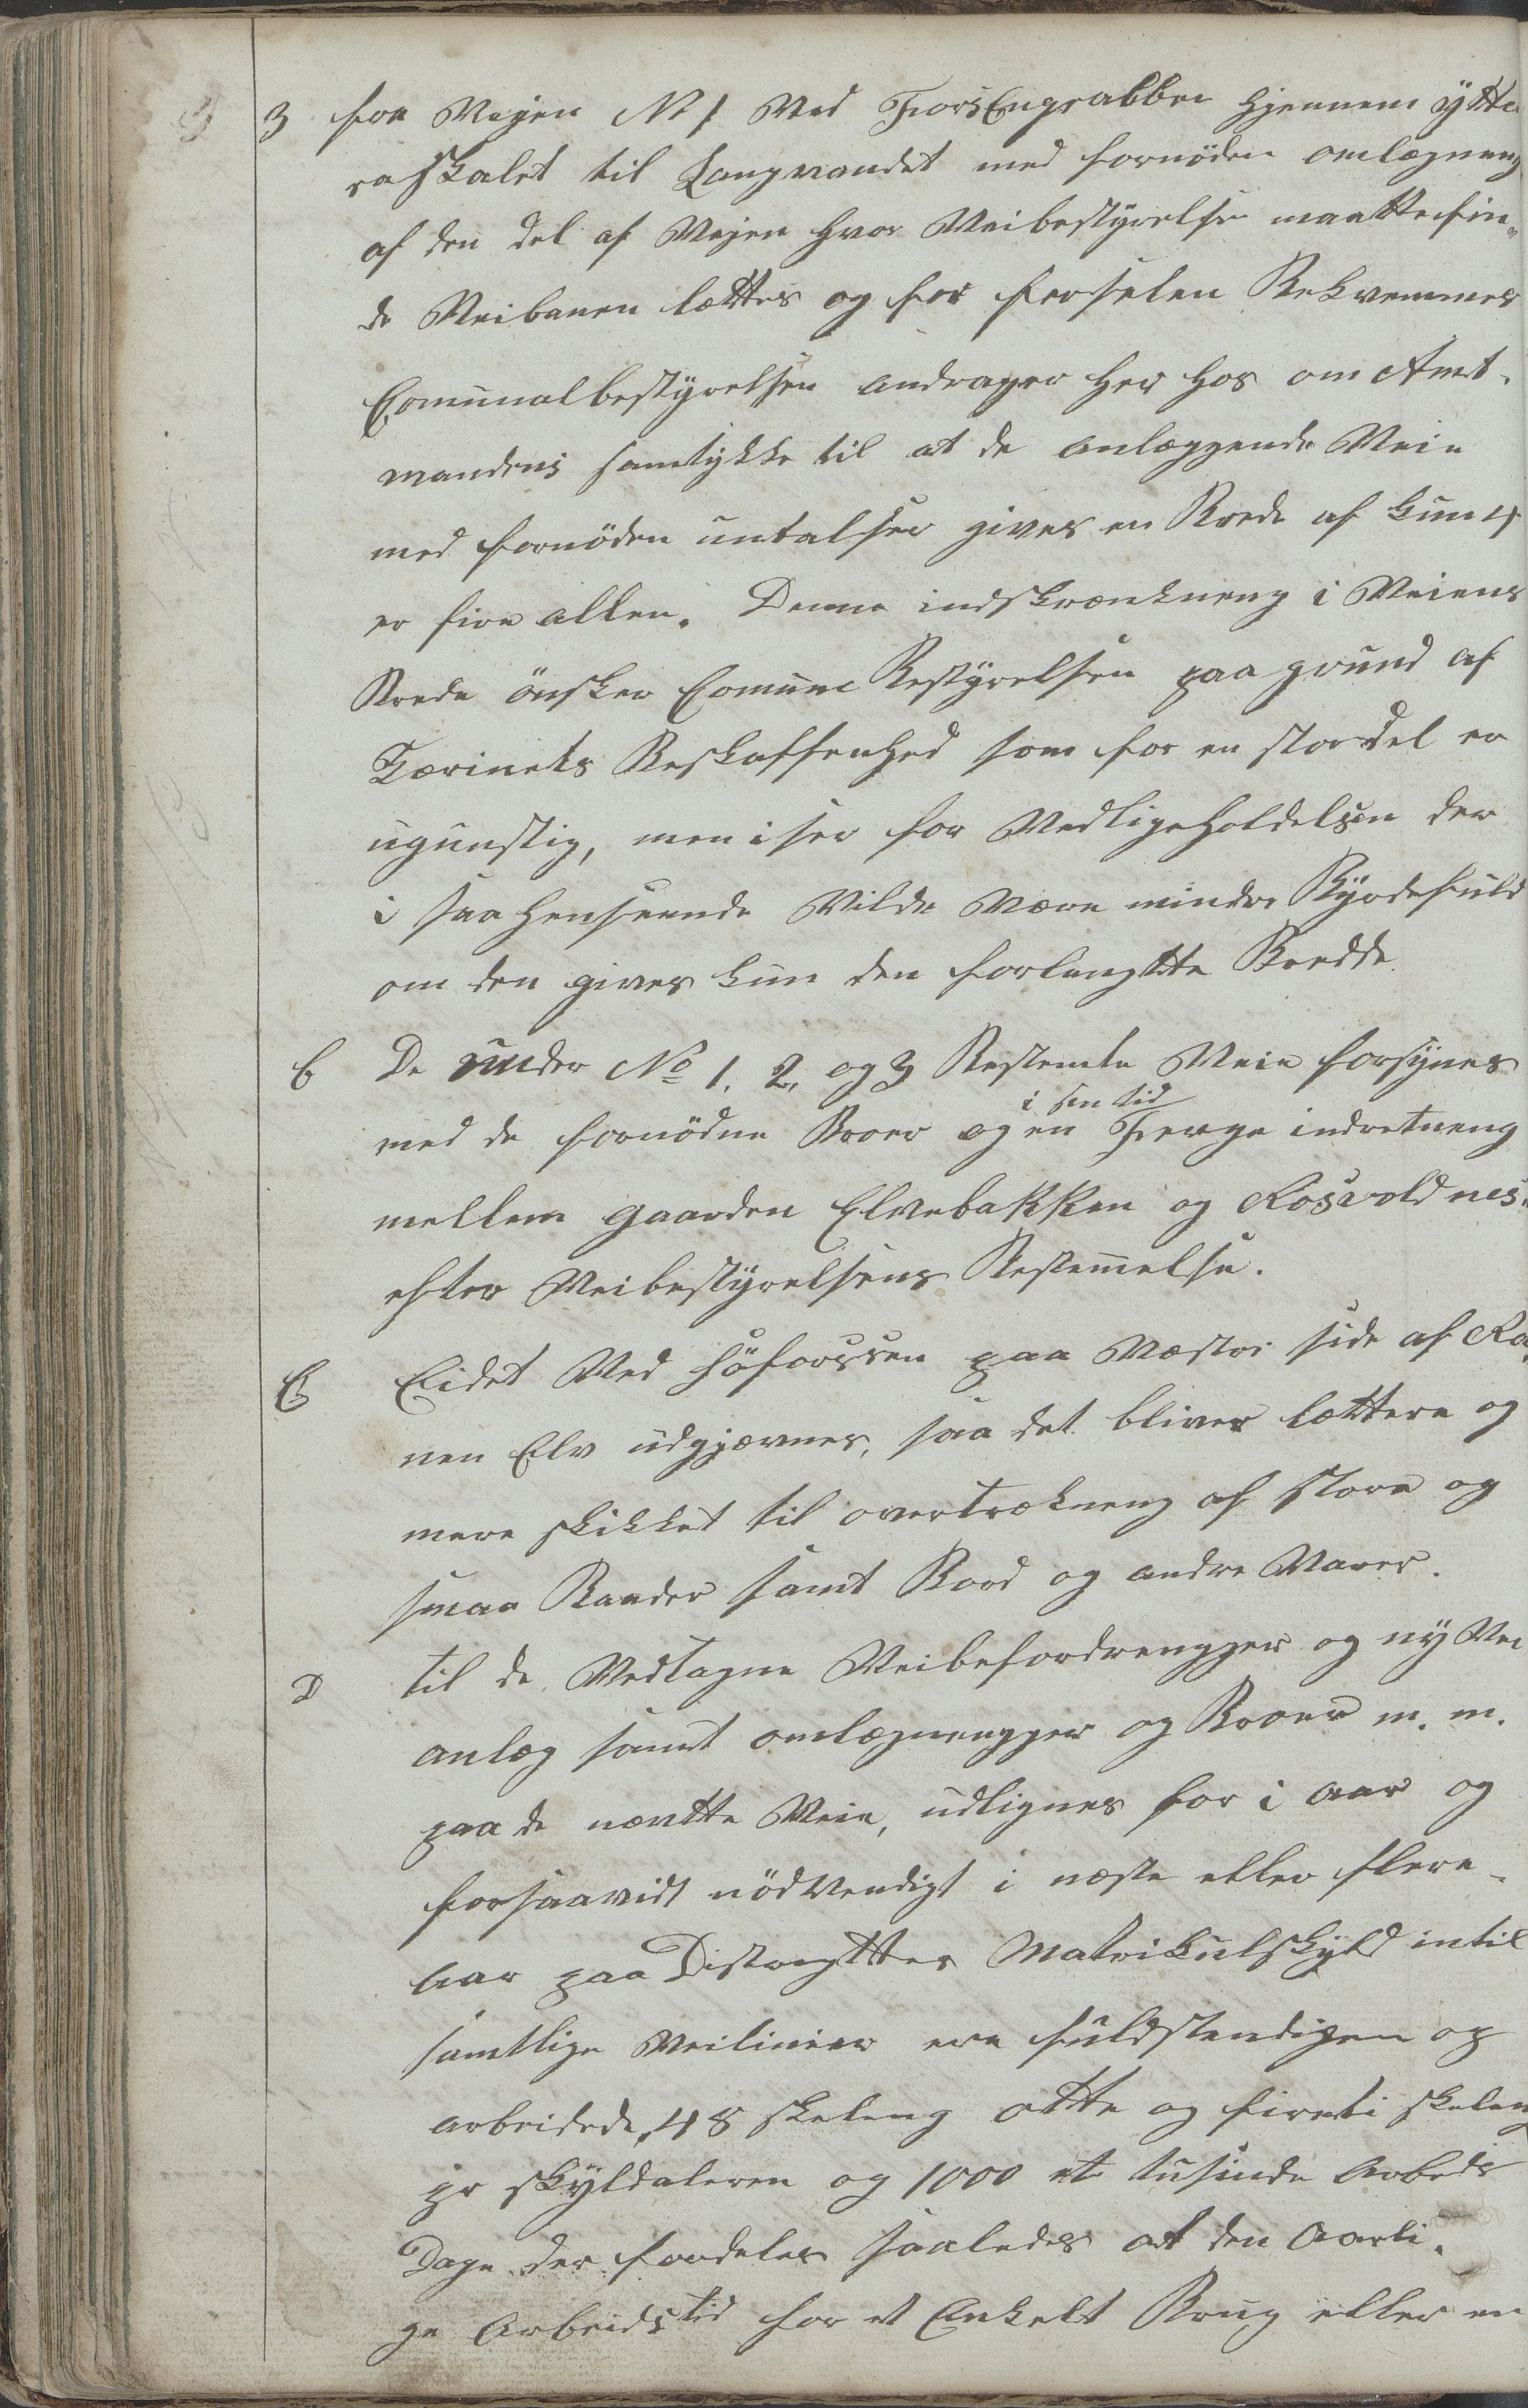 3 fra Vejen No 1 Ved Fiors Engrabben Gjennem ytte
raskalet til Langvandet med fornöden omlægneng
af den del af Vejen Hvor Veibestyrelse maatte fin„
de Veibanen lættes og for ferselen Bekvemmer
Comunalbestyrelsen andrager Her Hos om Amt„
mandens samtykke til at de anlæggende Veie
med fornöden untalser gives en Brede af kun 4
er fire allen. Denne indskrænkneng i Veiens
Brede önsker Comune Bestyrelsen paa grund af
Tærinets Beskaffenhed som for en stor del er
ugunstig, men iser for Vedligeholdelsen der
i saa Henseende Vilde Være mindre Byrdefuld
om den gives kun den forlangtte Bredde.
B De under No 1. 2, og 3 Bestemte Veie forsynes
i sin tid
med de fornödne Broer og en Ferge indretneng
mellem gaarden Elvebakken og Rosvoldnes„
efter Veibestyrelsens Bestemelse.
C Eidet Ved Höforssen paa Væstre side af Ra„
nen Elv udgjævnes, saa det bliver lættere og
mere skikket til overtrækneng af store og
smaa Baader samt Bord og andre Varer.
D til de Vedtagne Veibefordrengger og ny Vei
anlæg samt omlægnengger og Broer m. m.
paa de nævtte Veie, udlignes for i aar og
forsaavidt nödvendigt i næste eller flere
Aar paa Distregttes Matrikulskyld intil
samtlige Veilinier ere fuldstendigen op
arbeidede, 48 skeleng otte og firti skeleng
pr skyldaleren og 1000 et tusinde Arbeds
Dage der fordeles saaledes at den Aarli„
ge Arbeidstid for et Enkelt Brug eller en